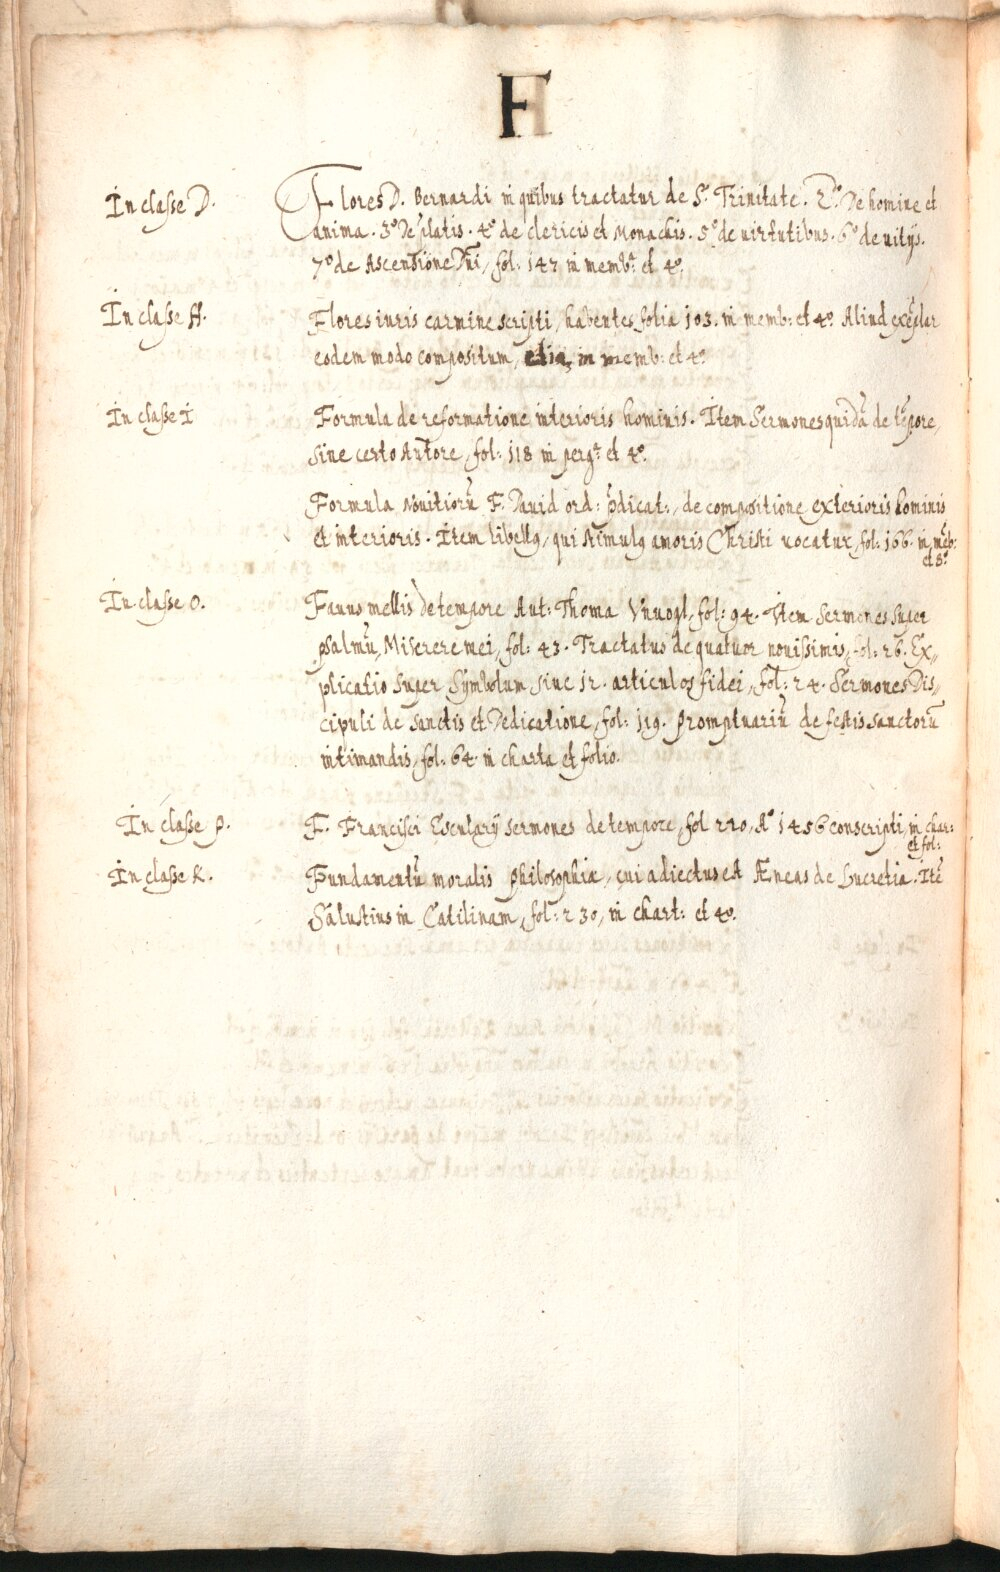 F
In classe D. Flores D. Bernardi in quibus tractatur de S. Trinitate. 2.º De homine et
anima. 3.º De p̃latis. 4.º de clericis et Monachis. 5.º de uirtutibus. 6.º de uitijs.
7.º de Ascensione Dñi, fol: 147 in memb: et 4.º
In classe H. Flores iuris carmine scripti, habentes folia 103. in memb: et 4.º Aliud exẽplar
eodem modo compositum, etiã in memb: et 4.º
In classe I Formula de reformatione interioris hominis. Item Sermones quidã de tẽpore,
sine certo Autore, fol: 118 in perg: et 4.º
Formula Nouitiorũ F. Dauid ord: p̃dicat:, de compositione exterioris hominis
et interioris. Item libellꝰ, qui Stimulꝰ amoris Christi uocatur, fol: 166. in mẽb:
et 8.º
In classe O. Fauus mellis de tempore Aut: Thoma fol: 94. Item Sermones super
psalmũ, Miserere mei, fol: 43. Tractatus de quatuor nouissimis, fol: 26. Ex=
plicatio super Symbolum siue 12. articulos fidei, fol: 24. Sermones Dis=
cipuli de Sanctis et Dedicatione, fol: 119. Promptuariũ de festis Sanctorũ
intimandis, fol: 64 in charta et folio.
In classe P. F. Francisci Esculary sermones de tempore, fol 220, Aº 1456 conscripti, in char:
et fol:
In classe R. Fundamentũ moralis Philosophiæ, cui adiectus est Æneas de Lucretia. Itẽ
Salustius in Catilinam, fol: 230, in chart: et 4.º